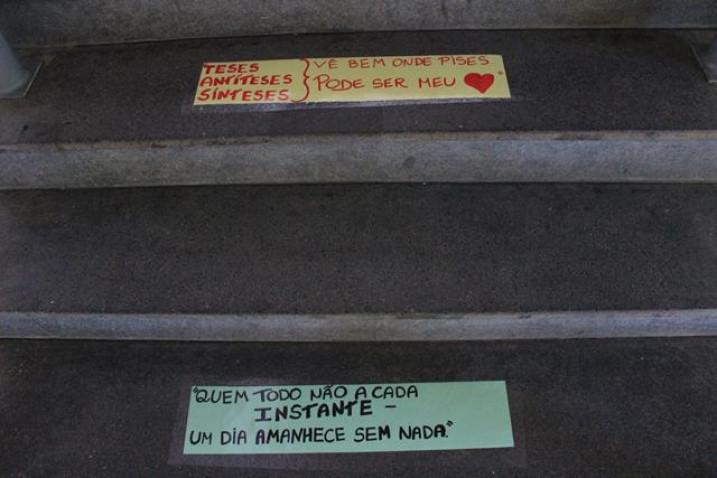 TESES
ANTÍTESES
SÍNTESES
VÊ BEM ONDE PISES
PODE SER MEU ❤"
"QUEM TODO NÃO A CADA
INSTANTE -
UM DIA AMANHECE SEM NADA."